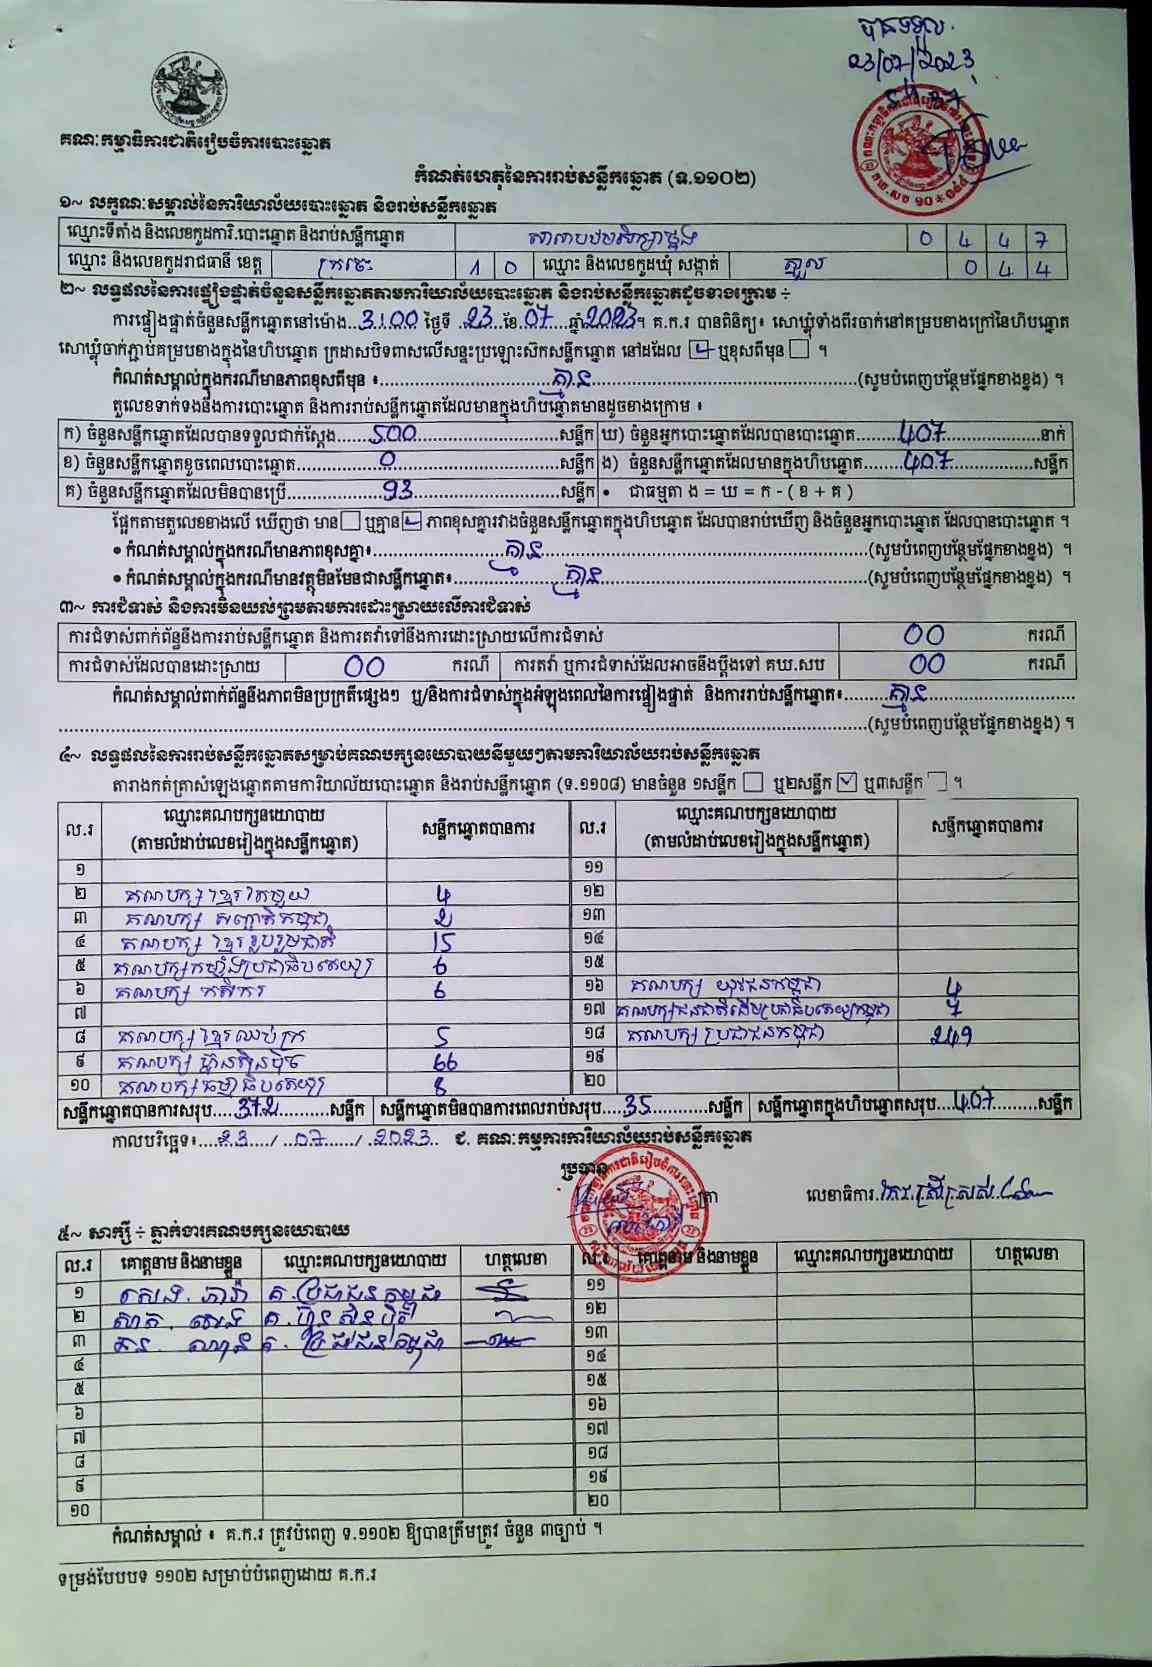 បានទទួល
23/07/2023
គណៈកម្មាធិការជាតិរៀបចំការបោះឆ្នោត
កំណត់ហេតុនៃការរាប់សន្លឹកឆ្នោត (ទ.១១០២)
១~ លក្ខណៈសម្គាល់នៃការិយាល័យបោះឆ្នោត និងរាប់សន្លឹកឆ្នោត
ឈ្មោះទីតាំង និងលេខកូដការិ.បោះឆ្នោត និងរាប់សន្លឹកឆ្នោត សាលាបឋមសិក្សា 0 4 4 7
ឈ្មោះ និងលេខកូដរាជធានី ខេត្ត ក្រចេះ 1 0 ឈ្មោះ និងលេខកូដឃុំ សង្កាត់ 0 4 4
២~ លទ្ធផលនៃការផ្ទៀងផ្ទាត់ចំនួនសន្លឹកឆ្នោតតាមការិយាល័យបោះឆ្នោត និងរាប់សន្លឹកឆ្នោតដូចខាងក្រោម ÷
ការផ្ទៀងផ្ទាត់ចំនួនសន្លឹកឆ្នោតនៅម៉ោង...3:00 ថ្ងៃទី ..23..ខែ.07....ឆ្នាំ2023។ គ.ក.រ បានពិនិត្យ៖ សោឃ្លុំទាំងពីរចាក់នៅគម្របខាងក្រៅនៃហិបឆ្នោត
សោឃ្លុំចាក់ភ្ជាប់គម្របខាងក្នុងនៃហិបឆ្នោត ក្រដាសបិទពាសលើសន្ទះប្រឡោះស៊កសន្លឹកឆ្នោត នៅដដែល ☑ ឬខុសពីមុន ☐ ។
កំណត់សម្គាល់ក្នុងករណីមានភាពខុសពីមុន ៖....គ្មាន....(សូមបំពេញបន្ថែមផ្នែកខាងខ្នង) ។
តួលេខទាក់ទងនឹងការបោះឆ្នោត និងការរាប់សន្លឹកឆ្នោតដែលមានក្នុងហិបឆ្នោតមានដូចខាងក្រោម ៖
ក) ចំនួនសន្លឹកឆ្នោតដែលបានទទួលជាក់ស្តែង......500......សន្លឹក ឃ) ចំនួនអ្នកបោះឆ្នោតដែលបានបោះឆ្នោត......407......នាក់
ខ) ចំនួនសន្លឹកឆ្នោតខូចពេលបោះឆ្នោត......0......សន្លឹក ង) ចំនួនសន្លឹកឆ្នោតដែលមានក្នុងហិបឆ្នោត......407......សន្លឹក
គ) ចំនួនសន្លឹកឆ្នោតដែលមិនបានប្រើ......93......សន្លឹក • ជាធម្មតា ង = ឃ = ក - ( ខ + គ )
ផ្អែកតាមតួលេខខាងលើ ឃើញថា មាន ☐ ឬគ្មាន ☑ ភាពខុសគ្នារវាងចំនួនសន្លឹកឆ្នោតក្នុងហិបឆ្នោត ដែលបានរាប់ឃើញ និងចំនួនអ្នកបោះឆ្នោត ដែលបានបោះឆ្នោត ។
• កំណត់សម្គាល់ក្នុងករណីមានភាពខុសគ្នា៖......គ្មាន......(សូមបំពេញបន្ថែមផ្នែកខាងខ្នង) ។
• កំណត់សម្គាល់ក្នុងករណីមានវត្ថុមិនមែនជាសន្លឹកឆ្នោត៖......គ្មាន......(សូមបំពេញបន្ថែមផ្នែកខាងខ្នង) ។
៣~ ការជំទាស់ និងការមិនយល់ព្រមតាមការដោះស្រាយលើការជំទាស់
ការជំទាស់ពាក់ព័ន្ធនឹងការរាប់សន្លឹកឆ្នោត និងការតវ៉ាទៅនឹងការដោះស្រាយលើការជំទាស់ 00 ករណី
ការជំទាស់ដែលបានដោះស្រាយ 00 ករណី ការតវ៉ា ឬការជំទាស់ដែលអាចនឹងប្តឹងទៅ គឃ.សប 00 ករណី
កំណត់សម្គាល់ពាក់ព័ន្ធនឹងភាពមិនប្រក្រតីផ្សេងៗ ឬ/និងការជំទាស់ក្នុងអំឡុងពេលនៃការផ្ទៀងផ្ទាត់ និងការរាប់សន្លឹកឆ្នោត៖......គ្មាន......
......(សូមបំពេញបន្ថែមផ្នែកខាងខ្នង) ។
៤~ លទ្ធផលនៃការរាប់សន្លឹកឆ្នោតសម្រាប់គណបក្សនយោបាយនីមួយៗតាមការិយាល័យរាប់សន្លឹកឆ្នោត
តារាងកត់ត្រាសំឡេងឆ្នោតតាមការិយាល័យបោះឆ្នោត និងរាប់សន្លឹកឆ្នោត (ទ.១១០៨) មានចំនួន ១សន្លឹក ☐ ឬ២សន្លឹក ☑ ឬ៣សន្លឹក ☐ ។
ល.រ ឈ្មោះគណបក្សនយោបាយ (តាមលំដាប់លេខរៀងក្នុងសន្លឹកឆ្នោត) សន្លឹកឆ្នោតបានការ ល.រ ឈ្មោះគណបក្សនយោបាយ (តាមលំដាប់លេខរៀងក្នុងសន្លឹកឆ្នោត) សន្លឹកឆ្នោតបានការ
១ ១១
២ គណបក្ស ខ្មែរតែមួយ 4 ១២
៣ គណបក្ស សញ្ជាតិកម្ពុជា 2 ១៣
៤ គណបក្ស ខ្មែររួបរួមជាតិ 15 ១៤
៥ គណបក្សកម្លាំងប្រជាធិបតេយ្យ 6 ១៥
៦ គណបក្ស កសិករ 6 ១៦ គណបក្ស យុវជនកម្ពុជា 4
៧ ១៧ គណបក្សជនជាតិដើមប្រជាធិបតេយ្យកម្ពុជា 7
៨ គណបក្ស ខ្មែរឈប់ក្រ 5 ១៨ គណបក្ស ប្រជាជនកម្ពុជា 249
៩ គណបក្ស ហ៊្វុនស៊ិនប៉ិច 66 ១៩
១០ គណបក្សធម្មាធិបតេយ្យ 8 ២០
សន្លឹកឆ្នោតបានការសរុប....372......សន្លឹក សន្លឹកឆ្នោតមិនបានការពេលរាប់សរុប....35......សន្លឹក សន្លឹកឆ្នោតក្នុងហិបឆ្នោតសរុប....407......សន្លឹក
កាលបរិច្ឆេទ៖....23..../...07..../..2023.. ជ. គណៈកម្មការការិយាល័យរាប់សន្លឹកឆ្នោត
ប្រធាន
ត្រា លេខាធិការ
៥~ សាក្សី ÷ ភ្នាក់ងារគណបក្សនយោបាយ
ល.រ គោត្តនាម និងនាមខ្លួន ឈ្មោះគណបក្សនយោបាយ ហត្ថលេខា ល.រ គោត្តនាម និងនាមខ្លួន ឈ្មោះគណបក្សនយោបាយ ហត្ថលេខា
១ សេង ភារ៉ា គ.ប្រជាជនកម្ពុជា ១១
២ គ.ហ៊្វុនស៊ិនប៉ិច ១២
៣ គ.ប្រជាជនកម្ពុជា ១៣
៤ ១៤
៥ ១៥
៦ ១៦
៧ ១៧
៨ ១៨
៩ ១៩
១០ ២០
កំណត់សម្គាល់ ៖ គ.ក.រ ត្រូវបំពេញ ទ.១១០២ ឱ្យបានត្រឹមត្រូវ ចំនួន ៣ច្បាប់ ។
ទម្រង់បែបបទ ១១០២ សម្រាប់បំពេញដោយ គ.ក.រ